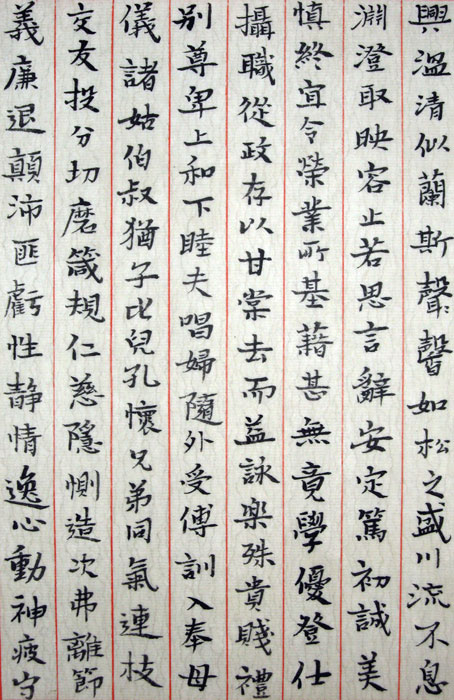 興溫清似蘭斯聲馨如松之盛川流不息
淵澄取映容止若思言辭安定篤初誠美
慎終宜令榮業所基藉甚無竟學優登仕
攝職從政存以甘棠去而益詠楽殊貴賤禮
别尊卑上和下睦夫唱婦隨外受傅訓入奉母
儀諸姑伯叔猶子比兒孔懷兄弟同氣連枝
交友投分切磨箴規仁慈隱惻造次弗離節
義廉退顛沛匪虧性静情逸心動神疲守